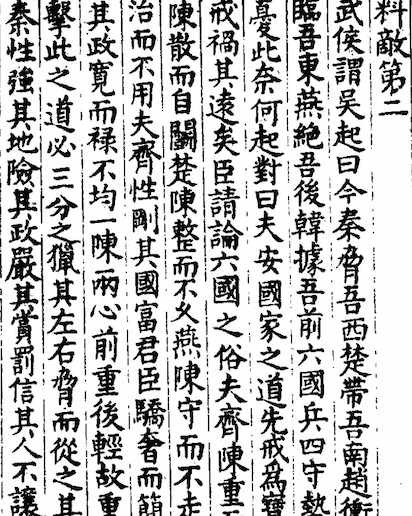 料敵第二
武侯謂吳起曰今秦脅吾西楚帶吾南趙衝
臨吾東燕絶吾後韓據吾前六國兵四守勢
憂此奈何起對曰夫安國家之道先戒爲寶
戒禍其遠矣臣請論六國之俗夫齊陳重
陳散而自鬭楚陳整而不久燕陳守而不走
治而不用夫齊性剛其國富君臣驕奢而簡
其政寛而禄不均一陳兩心前重後輕故重
擊此之道必三分之獵其左右脅而從之其
秦性強其地險其政嚴其賞罰信其人不讓